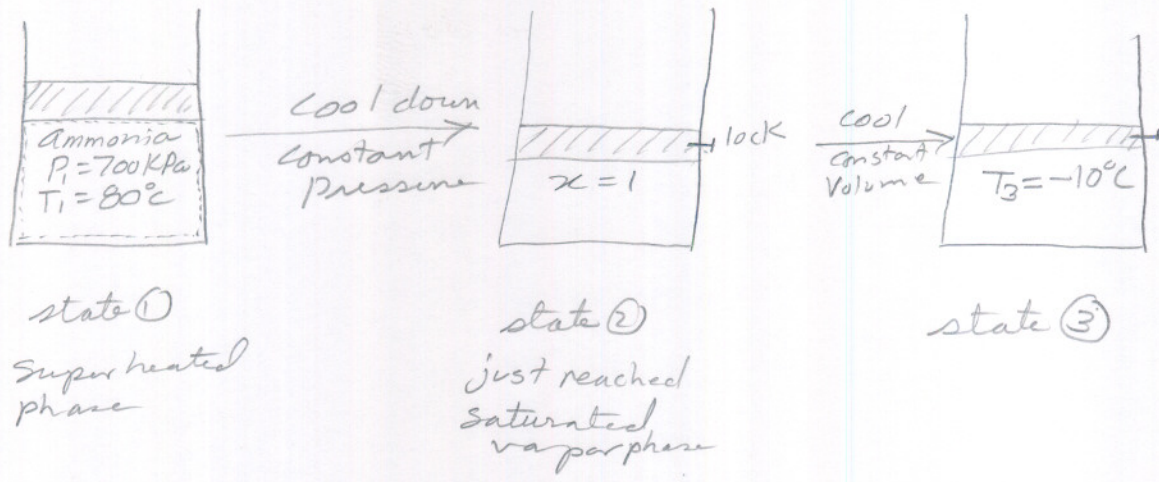 Ammonia
P₁ = 700 KPa
T₁ = 80°C
Cool down
Constant
Pressure
x = 1
lock
cool
constant
Volume
T₃ = -10°C
state ①
Superheated
phase
state ②
just reached
saturated
vapor phase
state ③